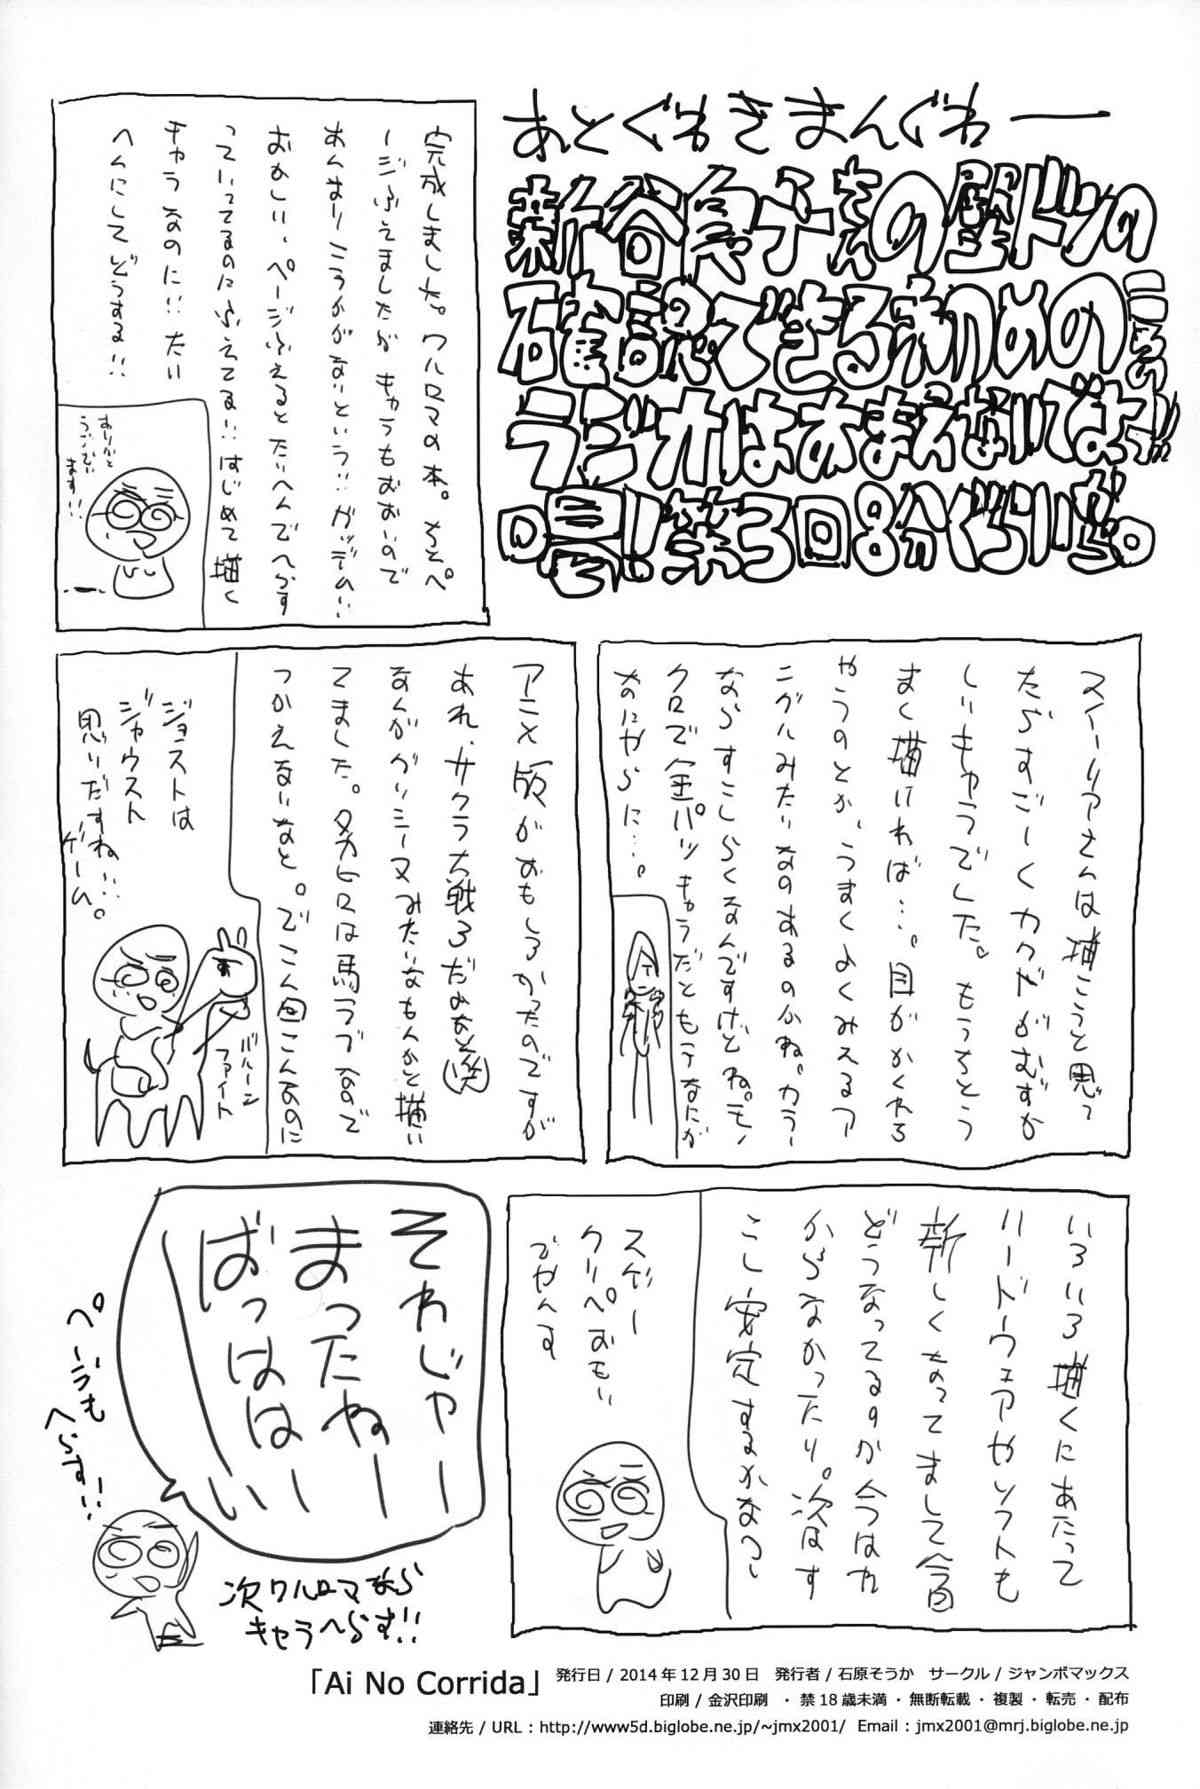 あとぐわきまんぐわー
新谷良子さんの壁ドンの
確認できる初めの
ラジオはおまえないでよっ!!
第3回8分ぐらい
完成しました。ワルロマの本。ちとペ
ージふえましたがキャラもおおいので
あんまりころががないという!!ガッデム!!
おかしい、ページふえるとたいへんでへらす
っていってるのにふえてる!!はじめて描く
キャラなのに!!たい
へんにしてどうする!!
ありがと
うござい
ます!!
スイーリアさんは描こうと思って
たらすごーくカクやがむずか
しいキャラでした。もうちとう
まく描ければ…。目がかくれる
やうのとか、うまくよくみえるア
ングルみたいなのあるのかね。カラー
ならすこしらくなんですけどね。モノ
クロで金パツキャラだともうなにが
なにやらに…。
アニメ版がおもしろかったのですが
あれ、サクラ大戦3だみなと(笑)
なんかグリシーヌみたいなもんかと描い
てました。タカヒロは馬ラブなので
つかえないなと。でこん回こんなのに
ジョストは
ジャウスト
思いだすね…
ゲーム。
バルーン
ファイト
いろいろ描くにあたって
ハードウェアやソフトも
新しくなってまして今回
どうなってるすか今はわ
からなかったり。次はす
こし安定するかなっ
スゲー
クリペおもい
でやんす
それじゃー
まったねー
ばっははーい
ページも
へらす!!
次ワルロマなら
キャラへらす!!
「Ai No Corrida」 発行日 / 2014 年 12 月 30 日　発行者 / 石原そうか　サークル / ジャンボマックス
印刷 / 金沢印刷　・ 禁 18 歳未満 ・ 無断転載 ・ 複製 ・ 転売 ・ 配布
連絡先 / URL : http://www5d.biglobe.ne.jp/~jmx2001/　Email : jmx2001@mrj.biglobe.ne.jp